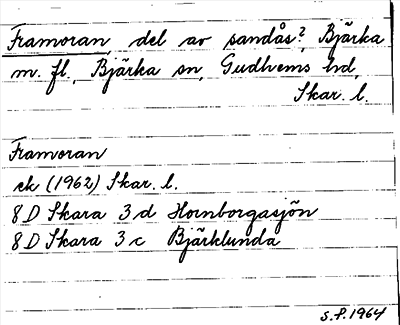 Framoran, del av sandås?, Bjärka
m. fl., Bjärka sn, Gudhems hd,
Skar. l.
Framoran
ek (1962) Skar. l.
8 D Skara 3 d Hornborgasjön
8 D Skara 3 c Bjärklunda
S.P. 1964